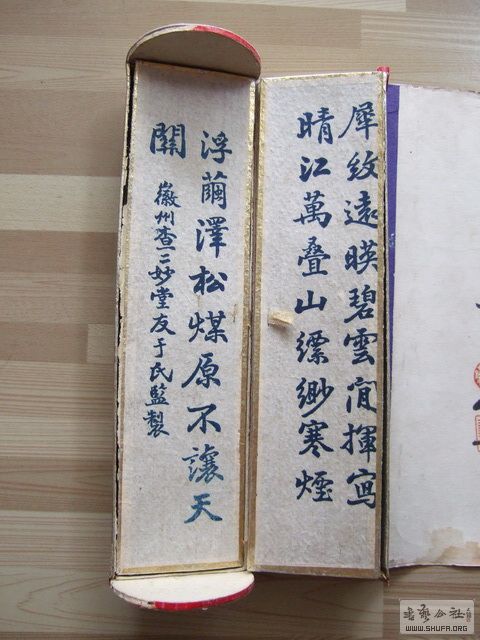 犀紋遠暎碧雲間揮寫
晴江萬叠山縹緲寒煙
浮繭澤松煤原不讓天
關
徽州查二妙堂友于氏監製
書藝公社
WWW.SHUFA.ORG